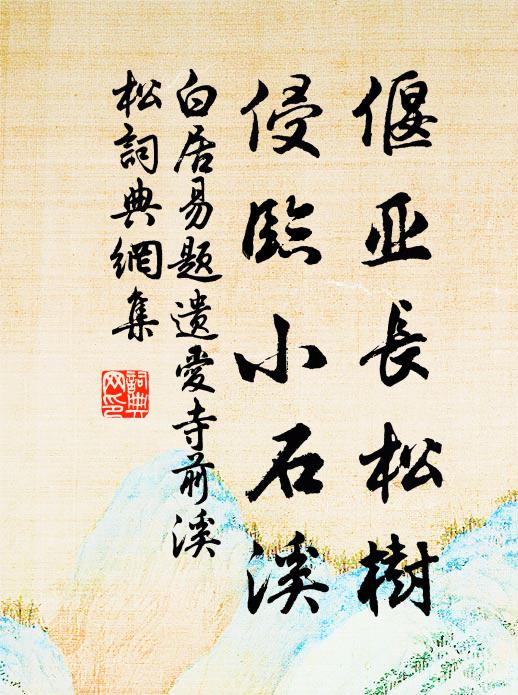 偃亚長松樹
侵臨小石溪
白居易题遗愛寺前溪
松詞典網集
詞典
网印